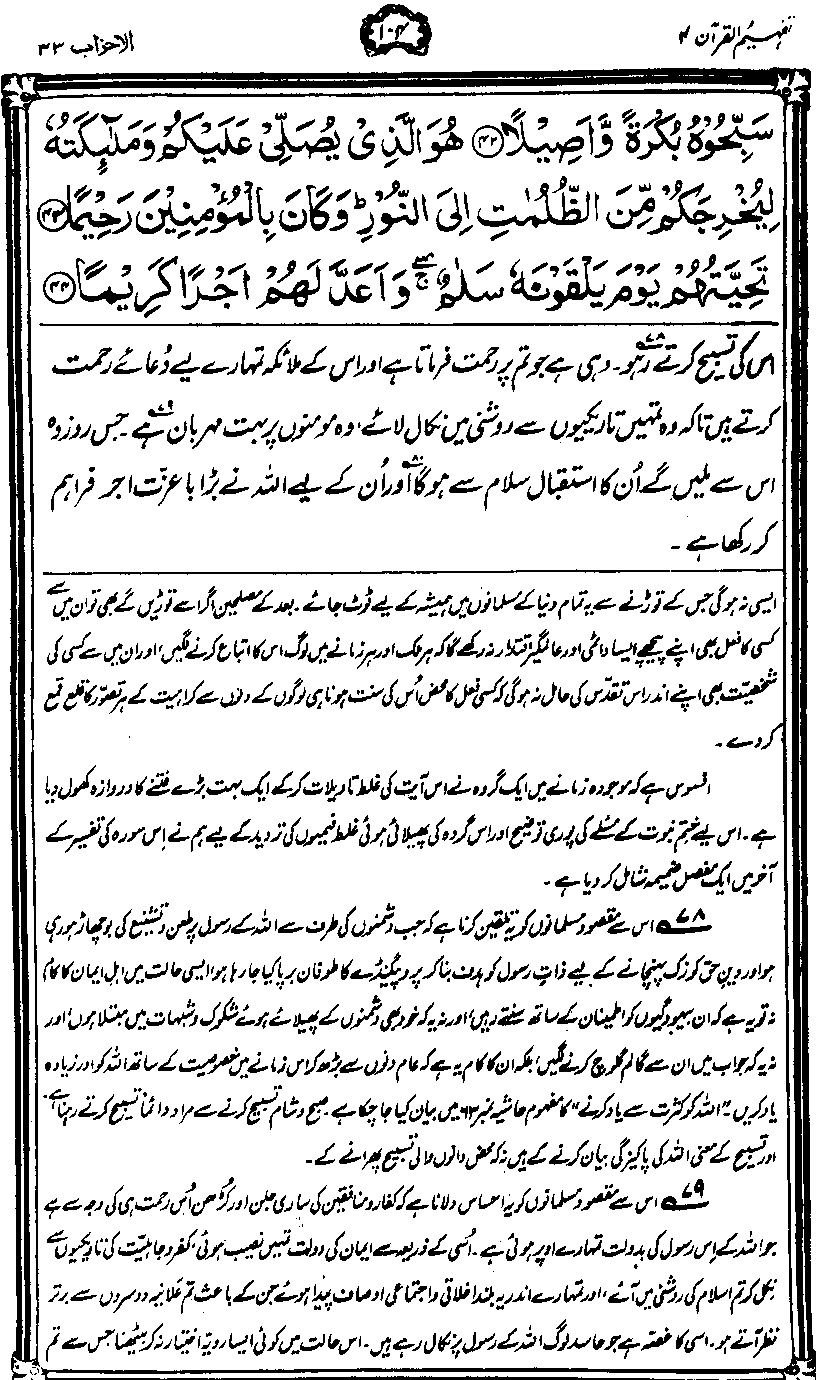 تفہیم القرآن ۴
۱۰۴
الاحزاب ۳۳
سَبِّحُوْهُ بُكْرَةً وَّاَصِيْلًا ﴿۴۲﴾ هُوَ الَّذِيْ يُصَلِّيْ عَلَيْكُمْ وَمَلٰٓئِكَتُهٗ
لِيُخْرِجَكُمْ مِّنَ الظُّلُمٰتِ اِلَى النُّوْرِ ؕ وَكَانَ بِالْمُؤْمِنِيْنَ رَحِيْمًا ﴿۴۳﴾
تَحِيَّتُهُمْ يَوْمَ يَلْقَوْنَهٗ سَلٰمٌ ۖۚ وَاَعَدَّ لَهُمْ اَجْرًا كَرِيْمًا ﴿۴۴﴾
اس کی تسبیح کرتے رہو۷۸۔ وہی ہے جو تم پر رحمت فرماتا ہے اور اس کے ملائکہ تمہارے لیے دُعائے رحمت
کرتے ہیں تاکہ وہ تمہیں تاریکیوں سے روشنی میں نکال لائے، وہ مومنوں پر بہت مہربان ہے۷۹۔ جس روز وہ
اس سے ملیں گے اُن کا استقبال سلام سے ہوگا۸۰ اور اُن کے لیے اللہ نے بڑا باعزّت اجر فراہم
کر رکھا ہے۔
ایسی نہ ہوگی جس کے توڑنے سے یہ تمام دنیا کے مسلمانوں میں ہمیشہ کے لیے ٹوٹ جائے۔ بعد کے مصلحین اگر اسے توڑیں گے بھی تو ان میں سے
کسی کا فعل بھی اپنے پیچھے ایسا دائمی اور عالمگیر اقتدار نہ رکھے گا کہ ہر ملک اور ہر زمانے میں لوگ اس کا اتباع کرنے لگیں، اور ان میں سے کسی کی
شخصیت بھی اپنے اندر اس تقدّس کی حامل نہ ہوگی کہ کسی فعل کا محض اُس کی سنت ہونا ہی لوگوں کے دلوں سے کراہیت کے ہر تصوّر کا قلع قمع
کر دے۔
افسوس ہے کہ موجودہ زمانے میں ایک گروہ نے اس آیت کی غلط تاویلات کر کے ایک بہت بڑے فتنے کا دروازہ کھول دیا
ہے۔ اس لیے ختم نبوت کے مسئلے کی پوری توضیح اور اس گروہ کی پھیلائی ہوئی غلط فہمیوں کی تردید کے لیے ہم نے اِس سورہ کی تفسیر کے
آخر میں ایک مفصل ضمیمہ شامل کر دیا ہے۔
۷۸ اس سے مقصود مسلمانوں کو یہ تلقین کرنا ہے کہ جب دشمنوں کی طرف سے اللہ کے رسول پر طعن و تشنیع کی بوچھاڑ ہو رہی
ہو اور دینِ حق کو زک پہنچانے کے لیے ذاتِ رسول کو ہدف بنا کر پروپیگنڈے کا طوفان برپا کیا جا رہا ہو، ایسی حالت میں اہلِ ایمان کا کام
نہ تو یہ ہے کہ ان بیہودگیوں کو اطمینان کے ساتھ سنتے رہیں، اور نہ یہ کہ خود بھی دشمنوں کے پھیلائے ہوئے شکوک و شبہات میں مبتلا ہوں، اور
نہ یہ کہ جواب میں ان سے گالم گلوچ کرنے لگیں، بلکہ ان کا کام یہ ہے کہ عام دنوں سے بڑھ کر اس زمانے میں خصوصیت کے ساتھ اللہ کو اور زیادہ
یاد کریں۔ "اللہ کو کثرت سے یاد کرنے" کا مفہوم حاشیہ نمبر ۶۳ میں بیان کیا جا چکا ہے۔ صبح و شام تسبیح کرنے سے مراد دائماً تسبیح کرتے رہنا ہے۔
اور تسبیح کے معنی اللہ کی پاکیزگی بیان کرنے کے ہیں نہ کہ محض دانوں والی تسبیح پھرانے کے۔
۷۹ اس سے مقصود مسلمانوں کو یہ احساس دلانا ہے کہ کفار و منافقین کی ساری جلن اور کُڑھن اُس رحمت ہی کی وجہ سے ہے
جو اللہ کے اِس رسول کی بدولت تمہارے اوپر ہوئی ہے۔ اُسی کے ذریعہ سے ایمان کی دولت تمہیں نصیب ہوئی، کفر و جاہلیّت کی تاریکیوں سے
نکل کر تم اسلام کی روشنی میں آئے، اور تمہارے اندر یہ بلند اخلاقی و اجتماعی اوصاف پیدا ہوئے جن کے باعث تم علانیہ دوسروں سے برتر
نظر آتے ہو۔ اسی کا غصّہ ہے جو حاسد لوگ اللہ کے رسول پر نکال رہے ہیں۔ اس حالت میں کوئی ایسا رویّہ اختیار نہ کر بیٹھنا جس سے تم